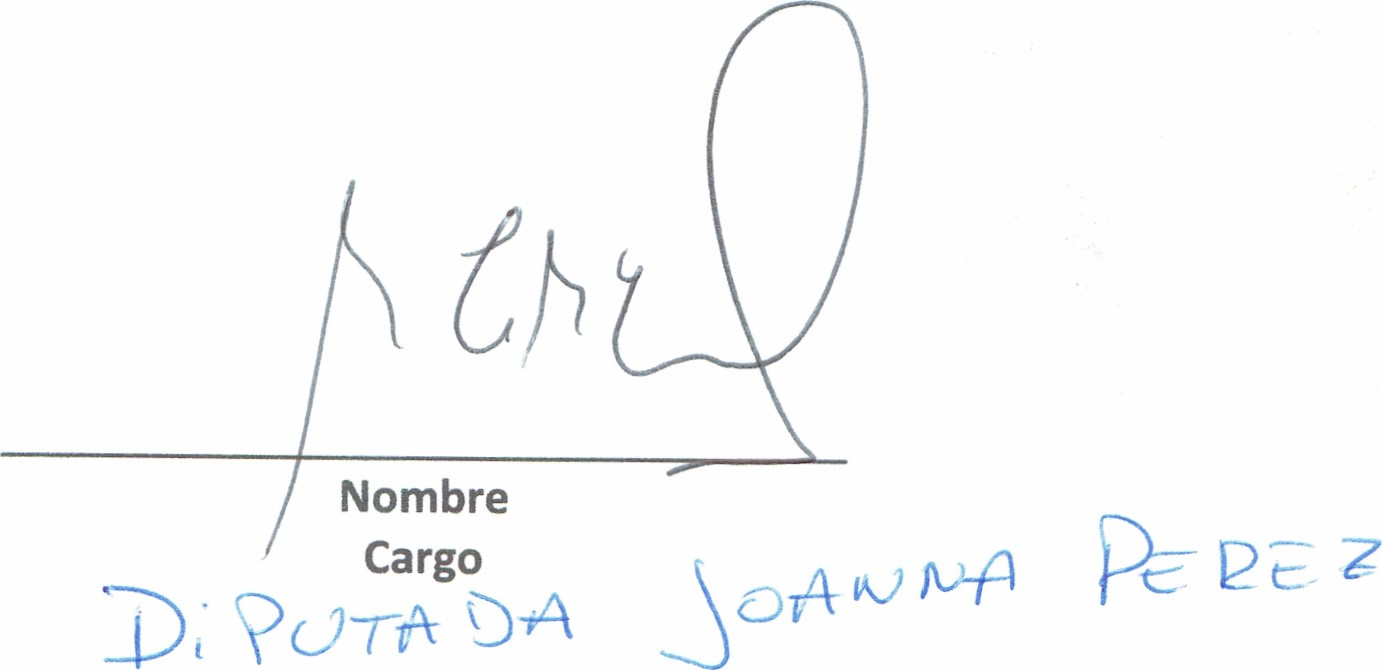 Nombre
Cargo
DiPUTADA JOANNA PEREZ